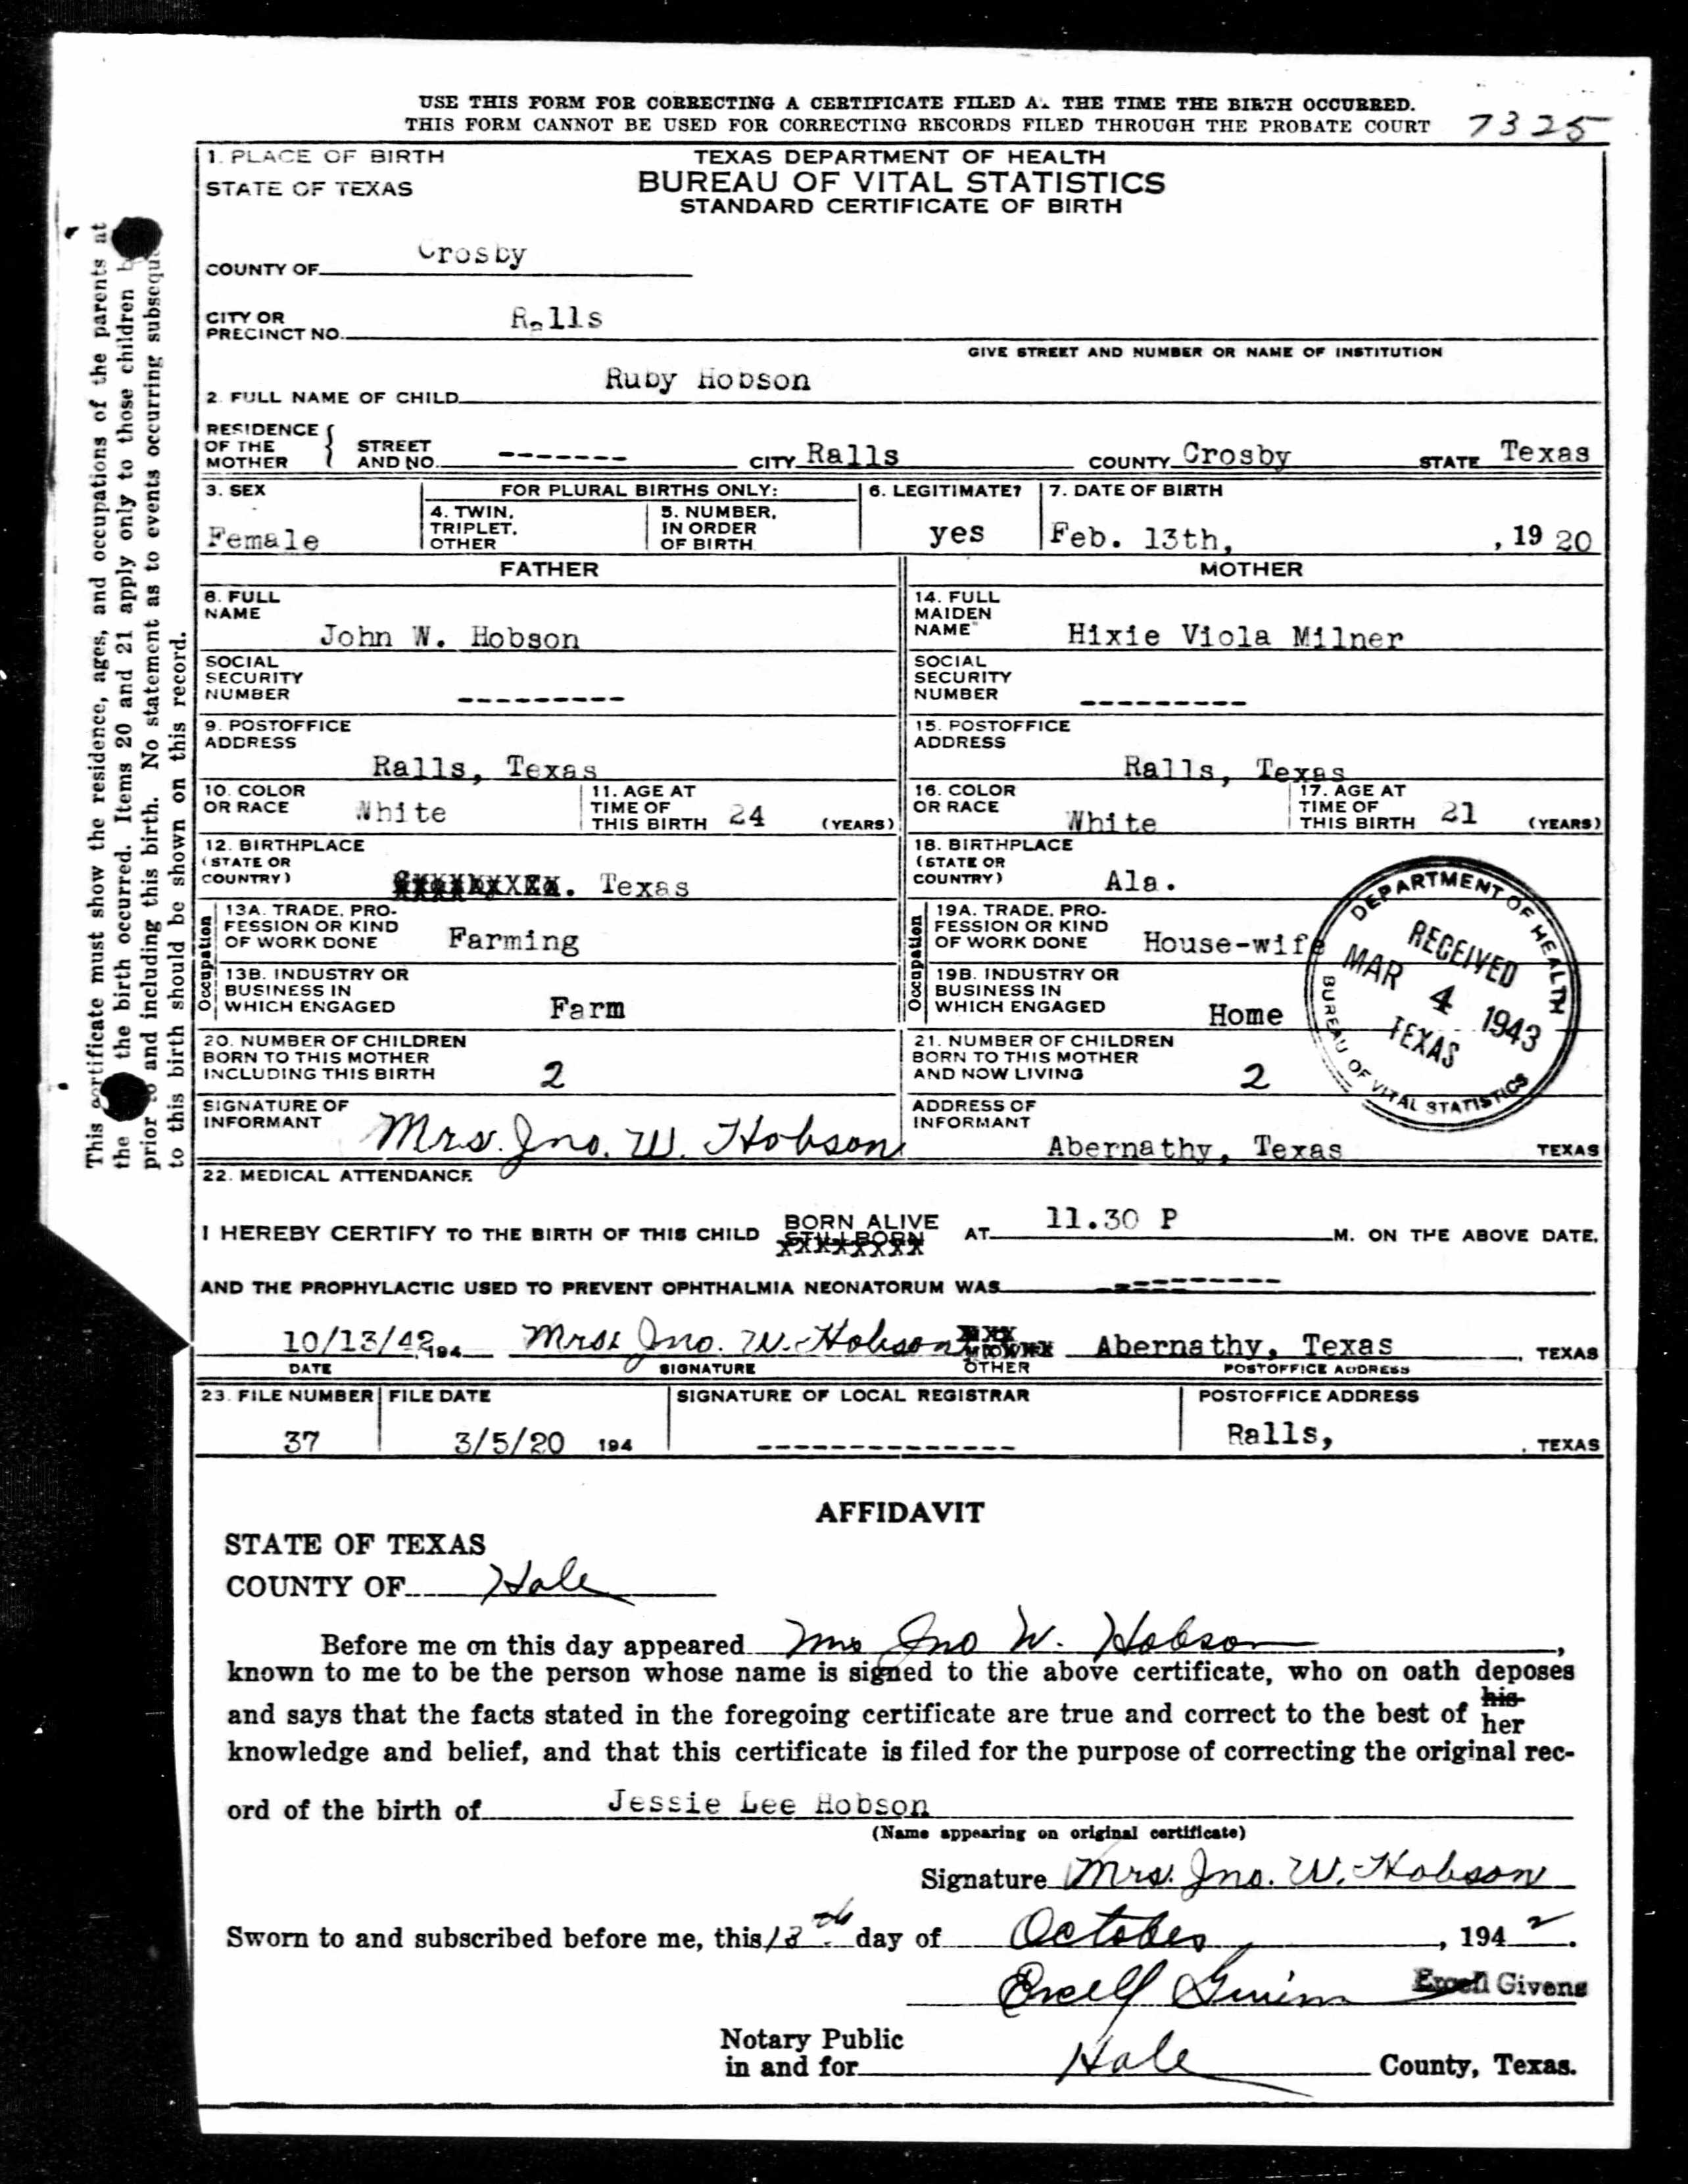 USE THIS FORM FOR CORRECTING A CERTIFICATE FILED A. THE TIME THE BIRTH OCCURRED.
THIS FORM CANNOT BE USED FOR CORRECTING RECORDS FILED THROUGH THE PROBATE COURT 7325
1. PLACE OF BIRTH
STATE OF TEXAS
TEXAS DEPARTMENT OF HEALTH
BUREAU OF VITAL STATISTICS
STANDARD CERTIFICATE OF BIRTH
COUNTY OF Crosby
CITY OR
PRECINCT NO. Ralls
GIVE STREET AND NUMBER OR NAME OF INSTITUTION
2. FULL NAME OF CHILD Ruby Hobson
RESIDENCE
OF THE
MOTHER
STREET
AND NO. -------- CITY Ralls COUNTY Crosby STATE Texas
3. SEX
Female
FOR PLURAL BIRTHS ONLY:
4. TWIN,
TRIPLET,
OTHER
5. NUMBER,
IN ORDER
OF BIRTH
6. LEGITIMATE?
yes
7. DATE OF BIRTH
Feb. 13th, , 19 20
FATHER
8. FULL
NAME
John W. Hobson
SOCIAL
SECURITY
NUMBER ----------
9. POSTOFFICE
ADDRESS
Ralls, Texas
10. COLOR
OR RACE White
11. AGE AT
TIME OF
THIS BIRTH 24 (YEARS)
12. BIRTHPLACE
(STATE OR
COUNTRY) Texas
Occupation
13A. TRADE, PRO-
FESSION OR KIND
OF WORK DONE Farming
13B. INDUSTRY OR
BUSINESS IN
WHICH ENGAGED Farm
20. NUMBER OF CHILDREN
BORN TO THIS MOTHER
INCLUDING THIS BIRTH 2
SIGNATURE OF
INFORMANT Mrs. Jno. W. Hobson
MOTHER
14. FULL
MAIDEN
NAME Hixie Viola Milner
SOCIAL
SECURITY
NUMBER ----------
15. POSTOFFICE
ADDRESS
Ralls, Texas
16. COLOR
OR RACE White
17. AGE AT
TIME OF
THIS BIRTH 21 (YEARS)
18. BIRTHPLACE
(STATE OR
COUNTRY) Ala.
Occupation
19A. TRADE, PRO-
FESSION OR KIND
OF WORK DONE House-wife
19B. INDUSTRY OR
BUSINESS IN
WHICH ENGAGED Home
21. NUMBER OF CHILDREN
BORN TO THIS MOTHER
AND NOW LIVING 2
ADDRESS OF
INFORMANT
Abernathy, Texas TEXAS
DEPARTMENT OF HEALTH
RECEIVED
MAR 4 1943
TEXAS
BUREAU OF VITAL STATISTICS
22. MEDICAL ATTENDANCE
I HEREBY CERTIFY TO THE BIRTH OF THIS CHILD BORN ALIVE STILLBORN AT 11.30 P M. ON THE ABOVE DATE,
AND THE PROPHYLACTIC USED TO PREVENT OPHTHALMIA NEONATORUM WAS ----------
10/13/42 194 Mrs. Jno. W. Hobson Abernathy, Texas , TEXAS
DATE SIGNATURE OTHER POSTOFFICE ADDRESS
23. FILE NUMBER
37
FILE DATE
3/5/20 194
SIGNATURE OF LOCAL REGISTRAR
---------------
POSTOFFICE ADDRESS
Ralls, , TEXAS
AFFIDAVIT
STATE OF TEXAS
COUNTY OF Hale
Before me on this day appeared Mrs Jno W. Hobson,
known to me to be the person whose name is signed to the above certificate, who on oath deposes
and says that the facts stated in the foregoing certificate are true and correct to the best of his her
knowledge and belief, and that this certificate is filed for the purpose of correcting the original rec-
ord of the birth of Jessie Lee Hobson
(Name appearing on original certificate)
Signature Mrs. Jno. W. Hobson
Sworn to and subscribed before me, this 13th day of October, 1942.
Excell Givens Givens
Notary Public
in and for Hale County, Texas.
This certificate must show the residence, ages, and occupations of the parents at
the the birth occurred. Items 20 and 21 apply only to those children
prior to and including this birth. No statement as to events occurring
to this birth should be shown on this record.